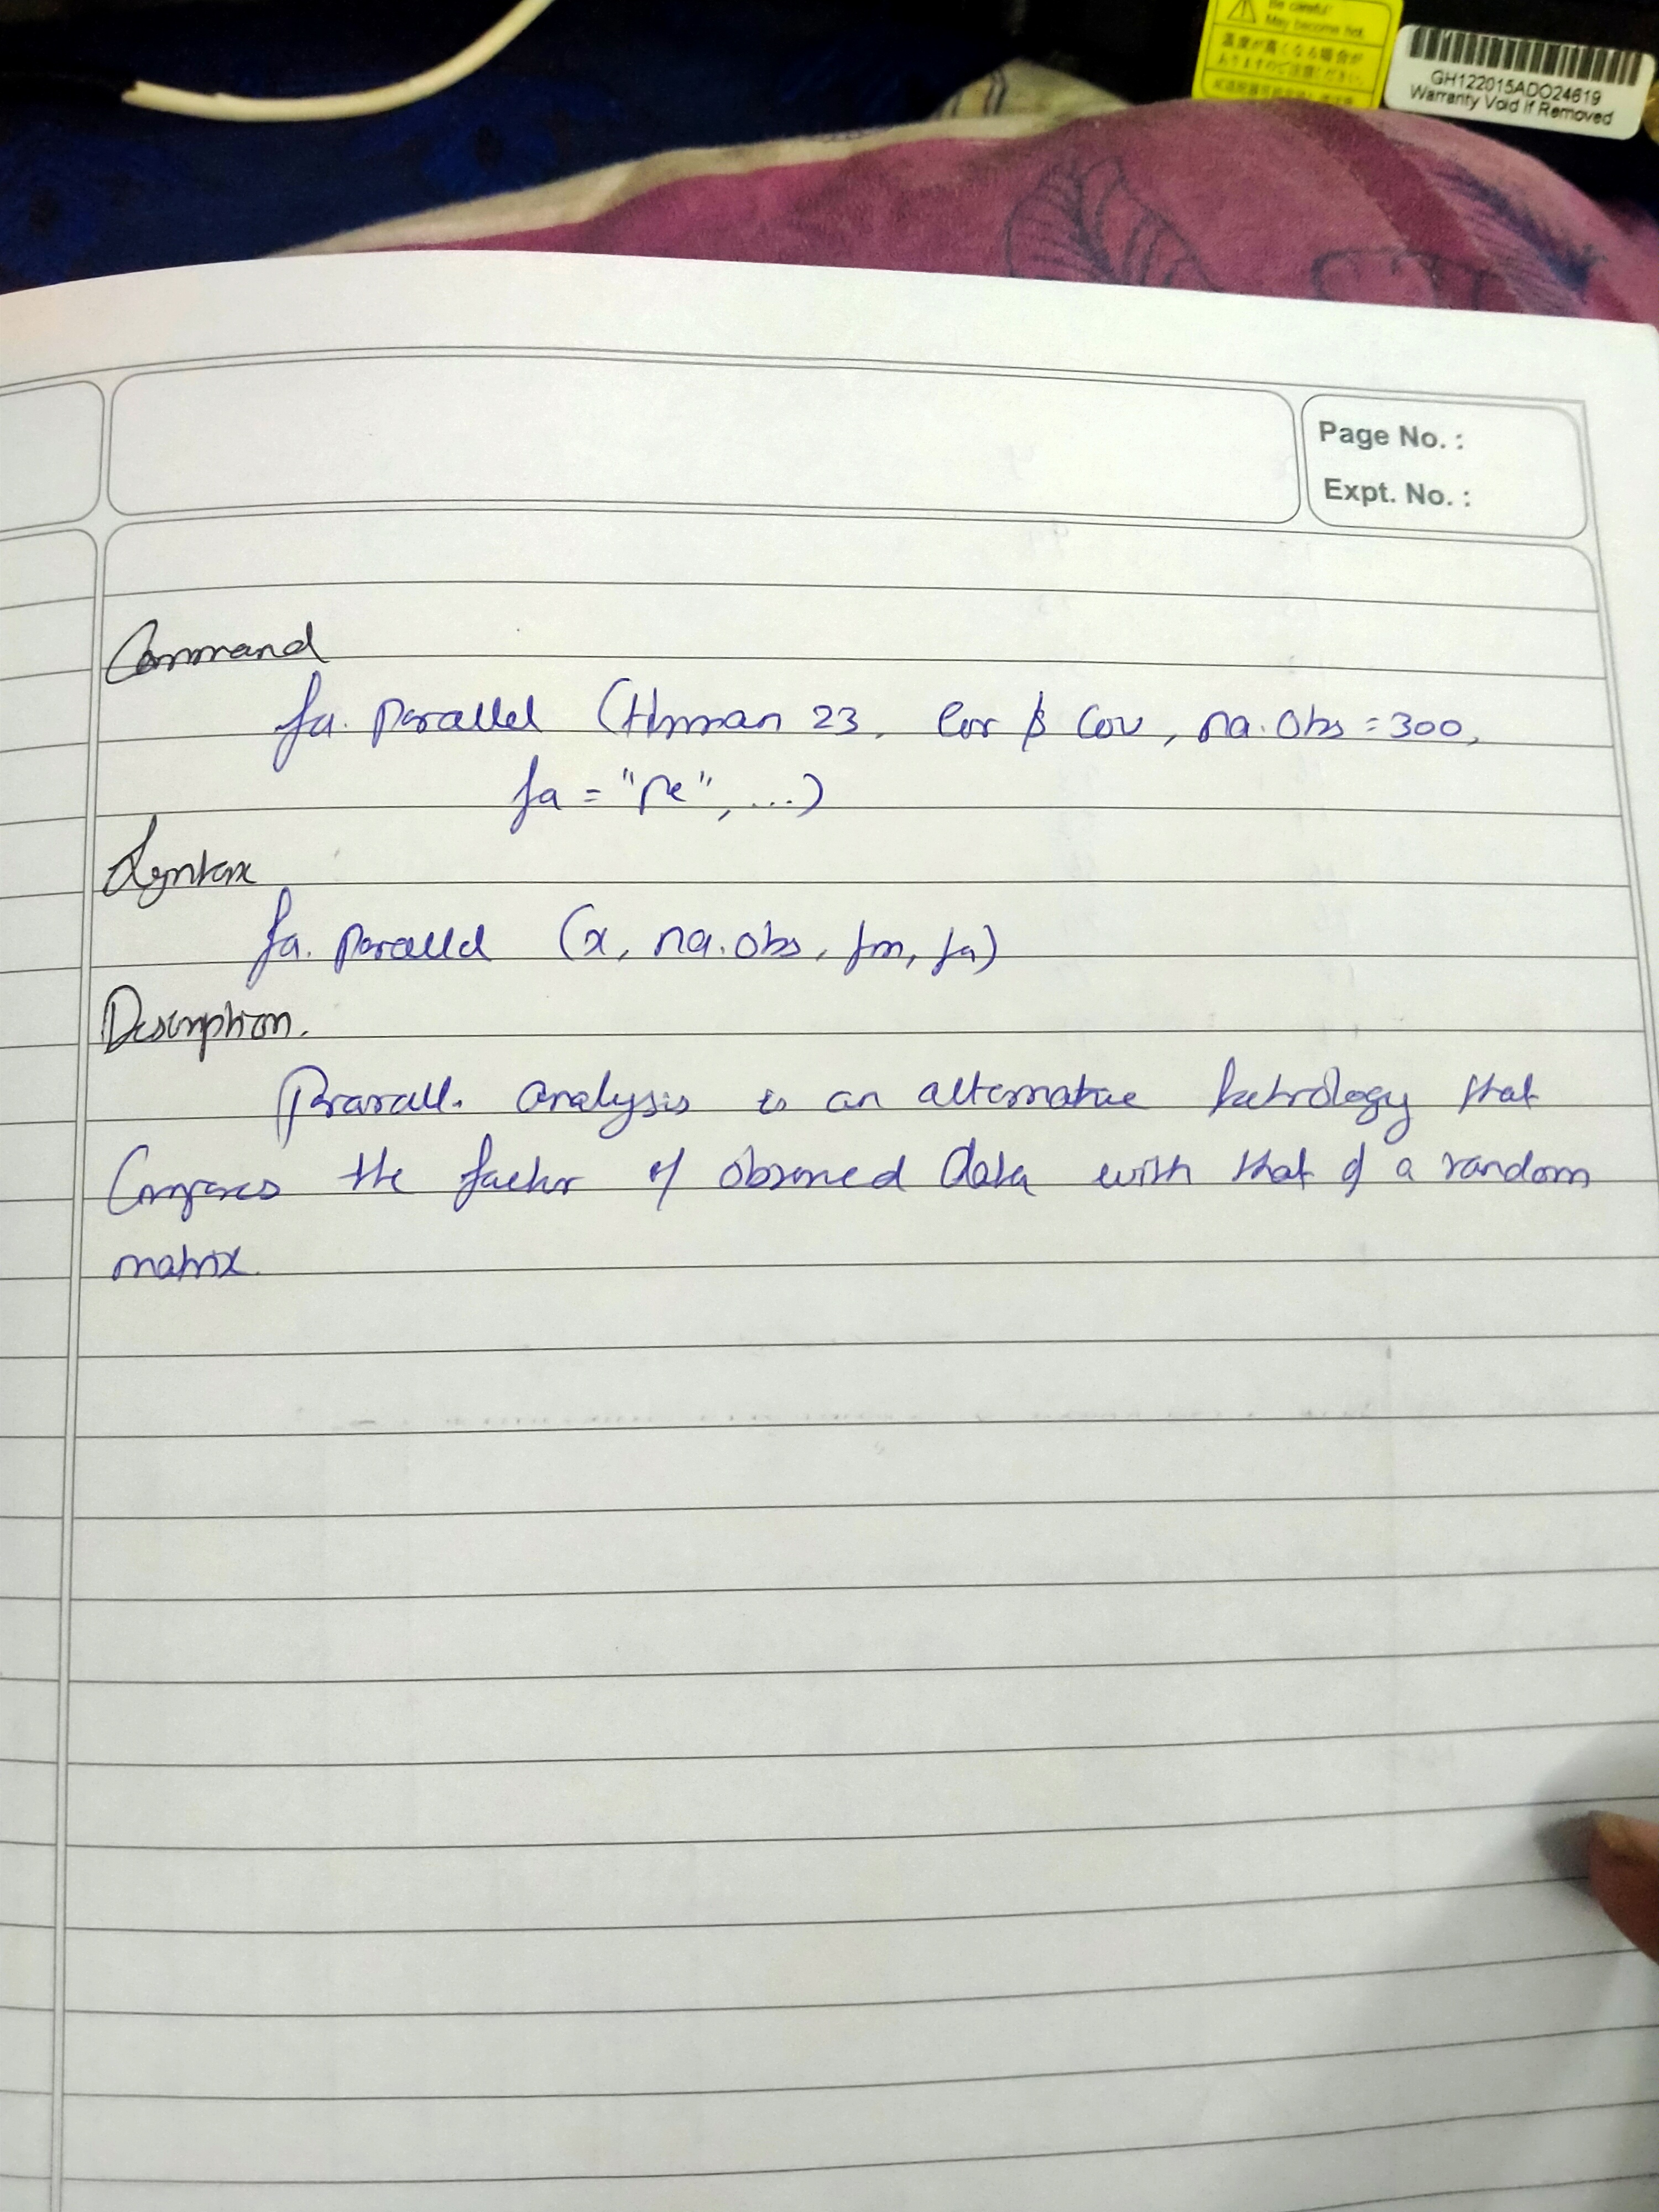 Be careful:
May become hot.
温度が高くなる場合が
ありますのでご注意ください。
GH122015ADO24619
Warranty Void If Removed
Page No. :
Expt. No. :
Command
fa. parallel (Human 23, Cor $ Cov, na.obs = 300,
fa = "Pc", ...)
Syntax
fa. parallel (x, na.obs, fm, fa)
Description.
Prarall. analysis is an alternative that
Compares the factor of observed data with that of a random
matrix.